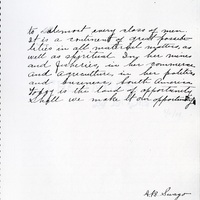 to almost every class of men.
It is a continent of great possibi-
lities in all material matters, as
well as spiritual. In her mines
and fisheries, in her commerce
and agriculture, in her politics
and business, South America
today is the land of opportunity
Shall we make it our opportunity